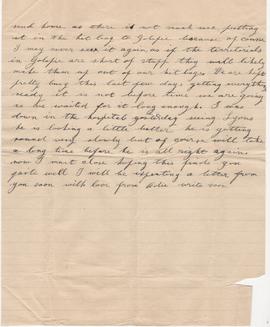 send home as there is not much use putting
it in the kit bag to Golspie because of course
I may never see it again, as if the territorials
in Golspie are short of stuff they will likely
make them up out of our kit bags. We are kept
pretty busy this last few days getting everything
ready it is not before time we are going
as we waited for it long enough. I was
down in the hospital yesterday seeing Lyons
he is looking a little better he is getting
round very slowly but of course will take
a long time before he is all right again
now I must close hoping this finds you
quite well I will be expecting a letter from
you soon with love from write soon